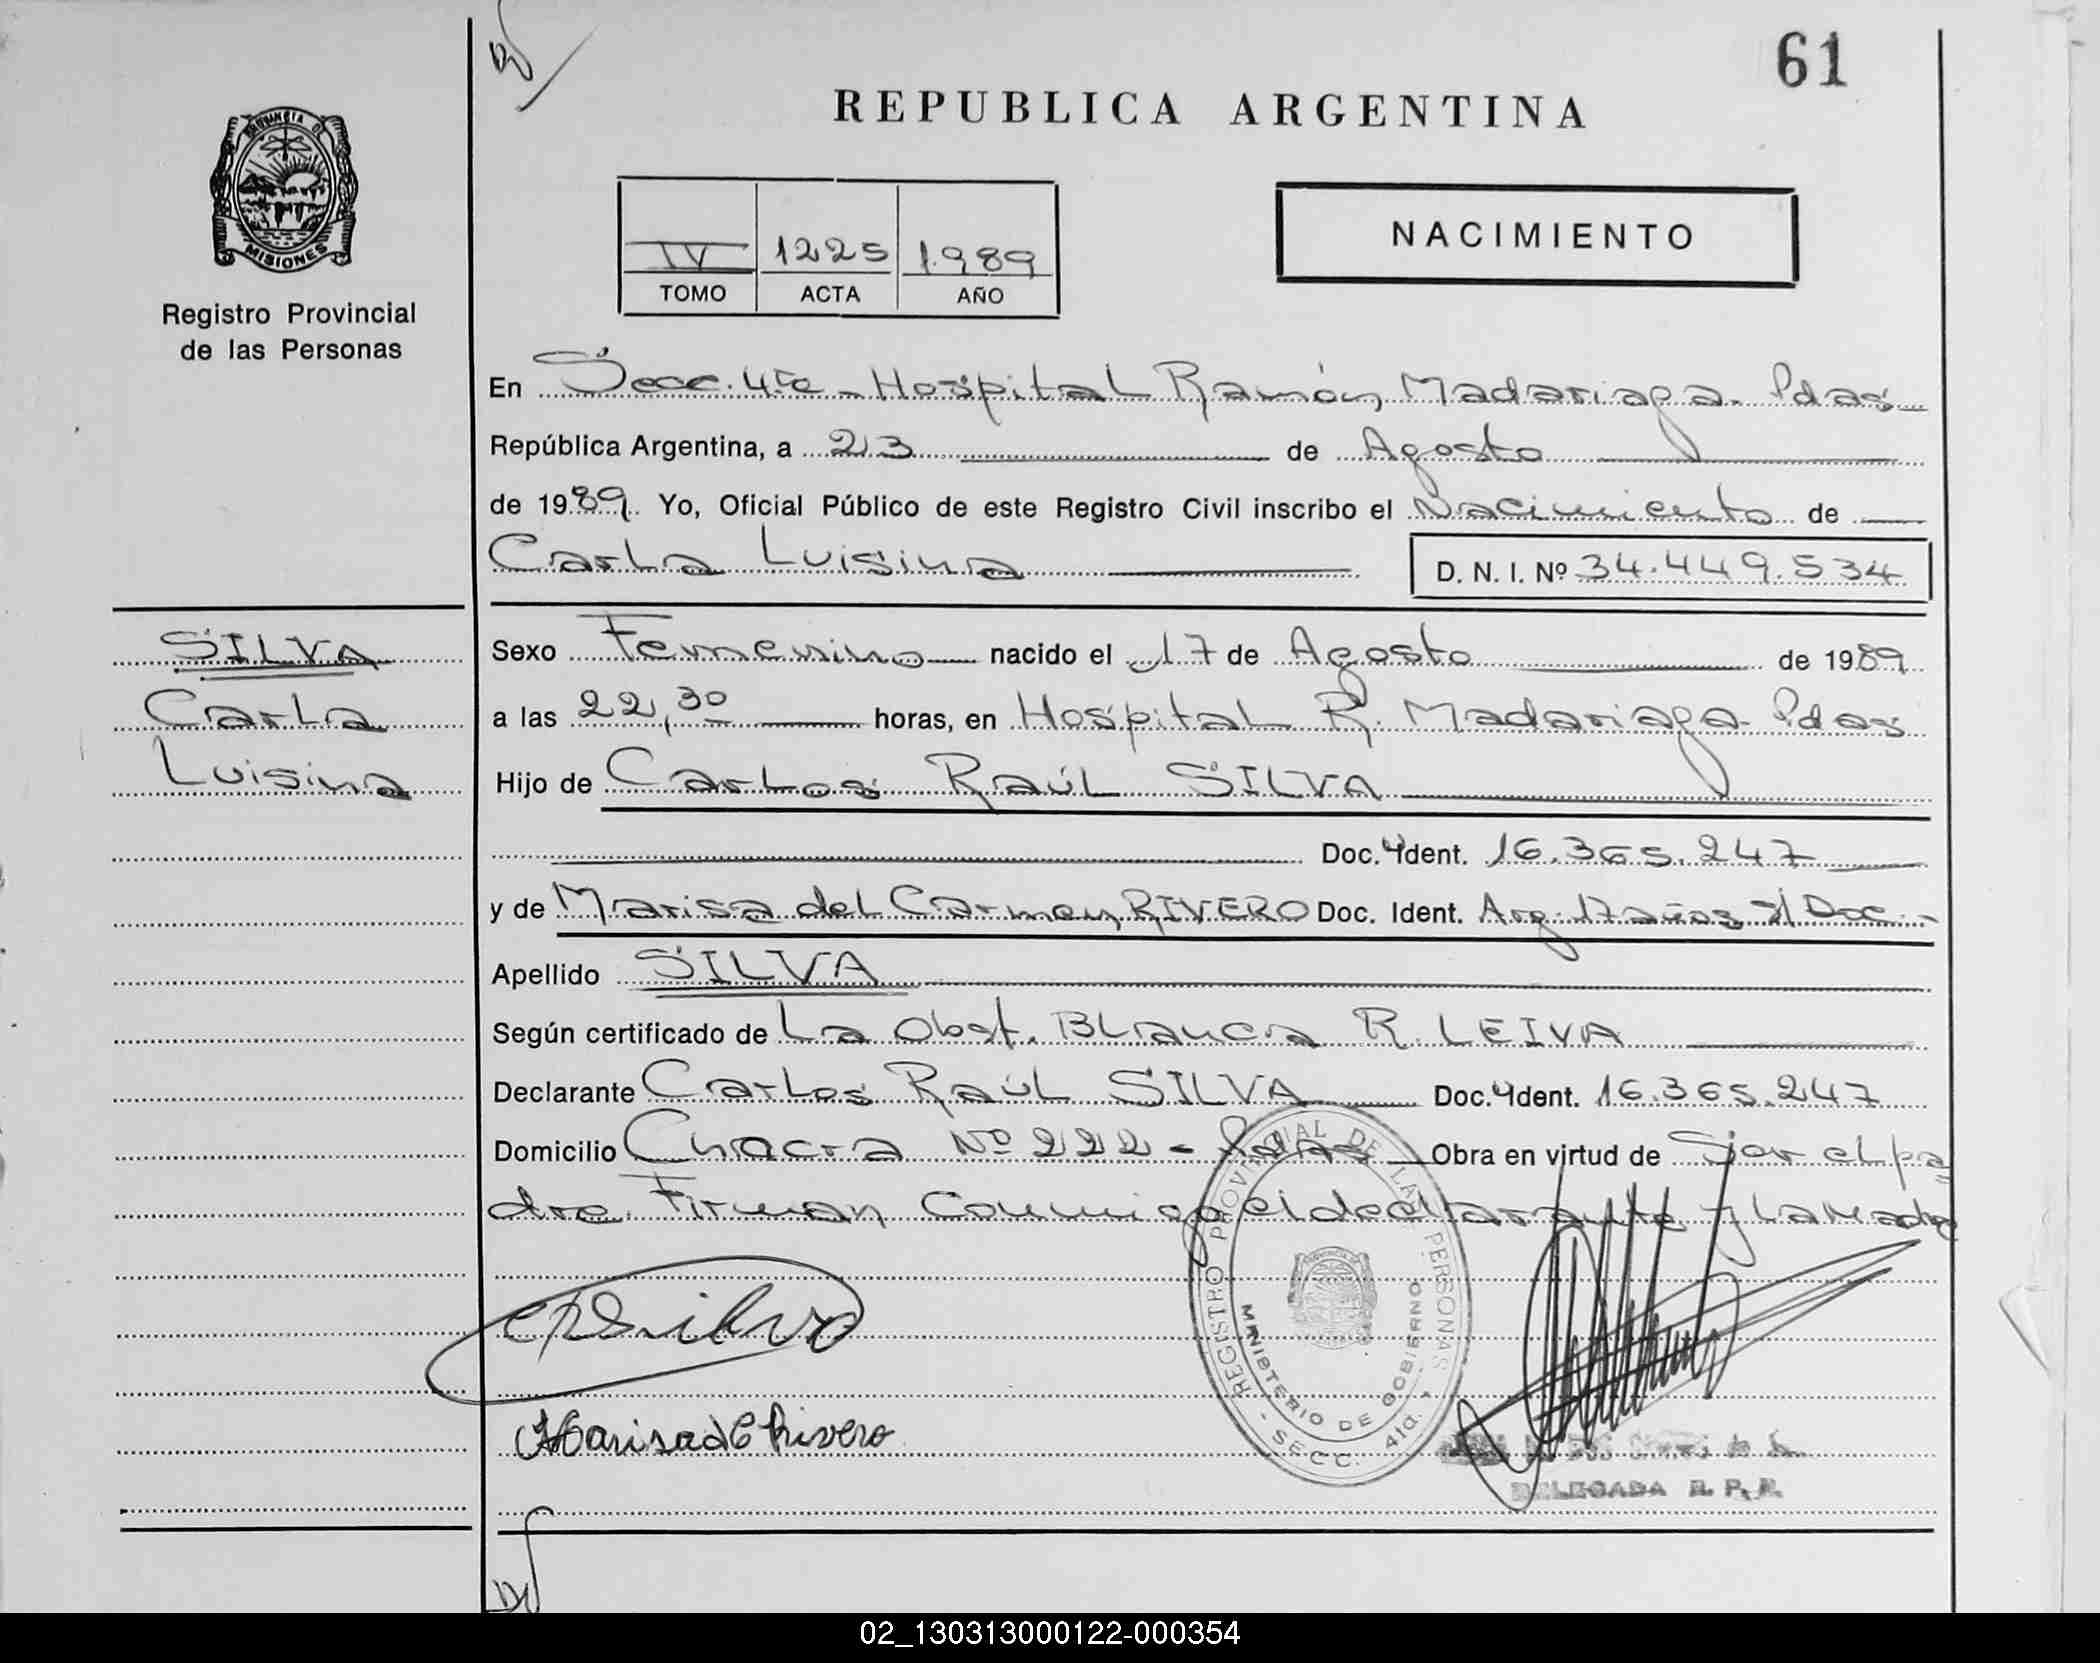 61
REPUBLICA ARGENTINA
PROVINCIA DE
MISIONES
Registro Provincial
de las Personas
IV 1225 1989
TOMO ACTA AÑO
NACIMIENTO
En Secc. 4ta - Hospital Ramón Madariaga. Pdas
República Argentina, a 23 de Agosto
de 1989. Yo, Oficial Público de este Registro Civil inscribo el Nacimiento de
Carla Luisina D. N. I. Nº 34.449.534
SILVA
Carla
Luisina
Sexo Femenino nacido el 17 de Agosto de 1989
a las 22,30 horas, en Hospital R. Madariaga. Pdas
Hijo de Carlos Raúl SILVA
Doc. Ident. 16.365.247
y de Marisa del Carmen RIVERO Doc. Ident. Arg. 17 años s/ Doc.-
Apellido SILVA
Según certificado de La Obst. Blanca R. LEIVA
Declarante Carlos Raúl SILVA Doc. Ident. 16.365.247
Domicilio Chacra Nº 222 - Pdas Obra en virtud de Ser el pa
dre. Firman Conmigo el declarante y la Madre
CRSilva
Marisa d C Rivero
REGISTRO PROVINCIAL DE LAS PERSONAS
MINISTERIO DE GOBIERNO
- SECC. 4ta. -
DELEGADA R. P. P.
02_130313000122-000354